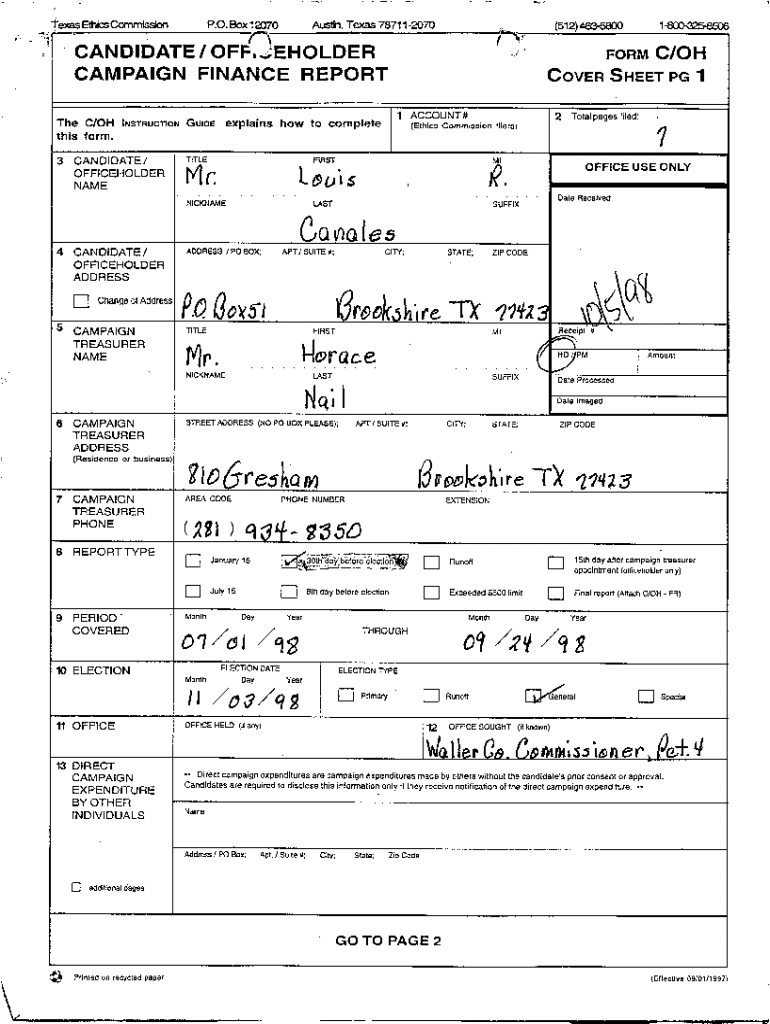 Texas Ethics Commission P.O. Box 12070 Austin, Texas 78711-2070 (512) 463-5800 1-800-325-8506
CANDIDATE / OFFICEHOLDER
CAMPAIGN FINANCE REPORT
FORM C/OH
COVER SHEET PG 1
The C/OH INSTRUCTION GUIDE explains how to complete
this form.
1 ACCOUNT #
(Ethics Commission filers)
2 Total pages filed:
7
3 CANDIDATE /
OFFICEHOLDER
NAME
TITLE FIRST MI
Mr. Louis R.
NICKNAME LAST SUFFIX
Canales
OFFICE USE ONLY
Date Received
10/5/98
Receipt #
HD / PM Amount
Date Processed
Date Imaged
4 CANDIDATE /
OFFICEHOLDER
ADDRESS
Change of Address
ADDRESS / PO BOX; APT / SUITE #; CITY; STATE; ZIP CODE
P.O. Box 51 Brookshire TX 77423
5 CAMPAIGN
TREASURER
NAME
TITLE FIRST MI
Mr. Horace
NICKNAME LAST SUFFIX
Nail
6 CAMPAIGN
TREASURER
ADDRESS
(Residence or business)
STREET ADDRESS (NO PO BOX PLEASE); APT / SUITE #; CITY; STATE; ZIP CODE
810 Gresham Brookshire TX 77423
7 CAMPAIGN
TREASURER
PHONE
AREA CODE PHONE NUMBER EXTENSION
(281) 934-8350
8 REPORT TYPE
January 15 30th day before election Runoff 15th day after campaign treasurer
appointment (officeholder only)
July 15 8th day before election Exceeded $500 limit Final report (Attach C/OH - FR)
9 PERIOD
COVERED
Month Day Year THROUGH Month Day Year
07/01/98 09/24/98
10 ELECTION
ELECTION DATE
Month Day Year
11/03/98
ELECTION TYPE
Primary Runoff General Special
11 OFFICE
OFFICE HELD (if any)
12 OFFICE SOUGHT (if known)
Waller Co. Commissioner, Pct. 4
13 DIRECT
CAMPAIGN
EXPENDITURE
BY OTHER
INDIVIDUALS
additional pages
-- Direct campaign expenditures are campaign expenditures made by others without the candidate's prior consent or approval.
Candidates are required to disclose this information only if they receive notification of the direct campaign expenditure. --
Name
Address / PO Box; Apt. / Suite #; City; State; Zip Code
GO TO PAGE 2
Printed on recycled paper
(Effective 09/01/1997)